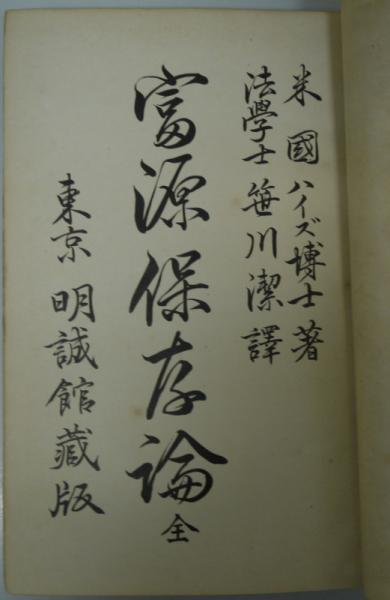 米國ハイズ博士著
法學士笹川潔譯
富源保存論全
東京明誠館藏版